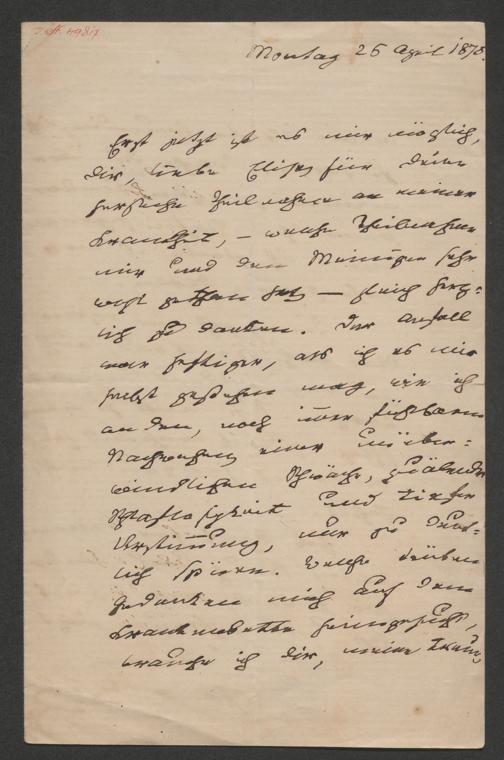 Montag 26 April 1875.
Erst jetzt ist es mir möglich,
dir, liebe Elise, für deine
herzliche Theilnahme an meiner
Krankheit, – welche Theilnahme
mir und den Meinigen sehr
wohl gethan hat – herz-
lich zu danken. Der Anfall
war heftiger, als ich es mir
selbst gestehen mag, wie ich
an den, noch immer fühlbaren
Nachwehen einer unüber-
windlichen Schwäche, quälender
Schlaflosigkeit und tiefer
Verstimmung, nur zu deut-
lich spüre. Welche trüben
Gedanken mich auf dem
Krankenbette heimgesucht,
brauche ich dir, meine